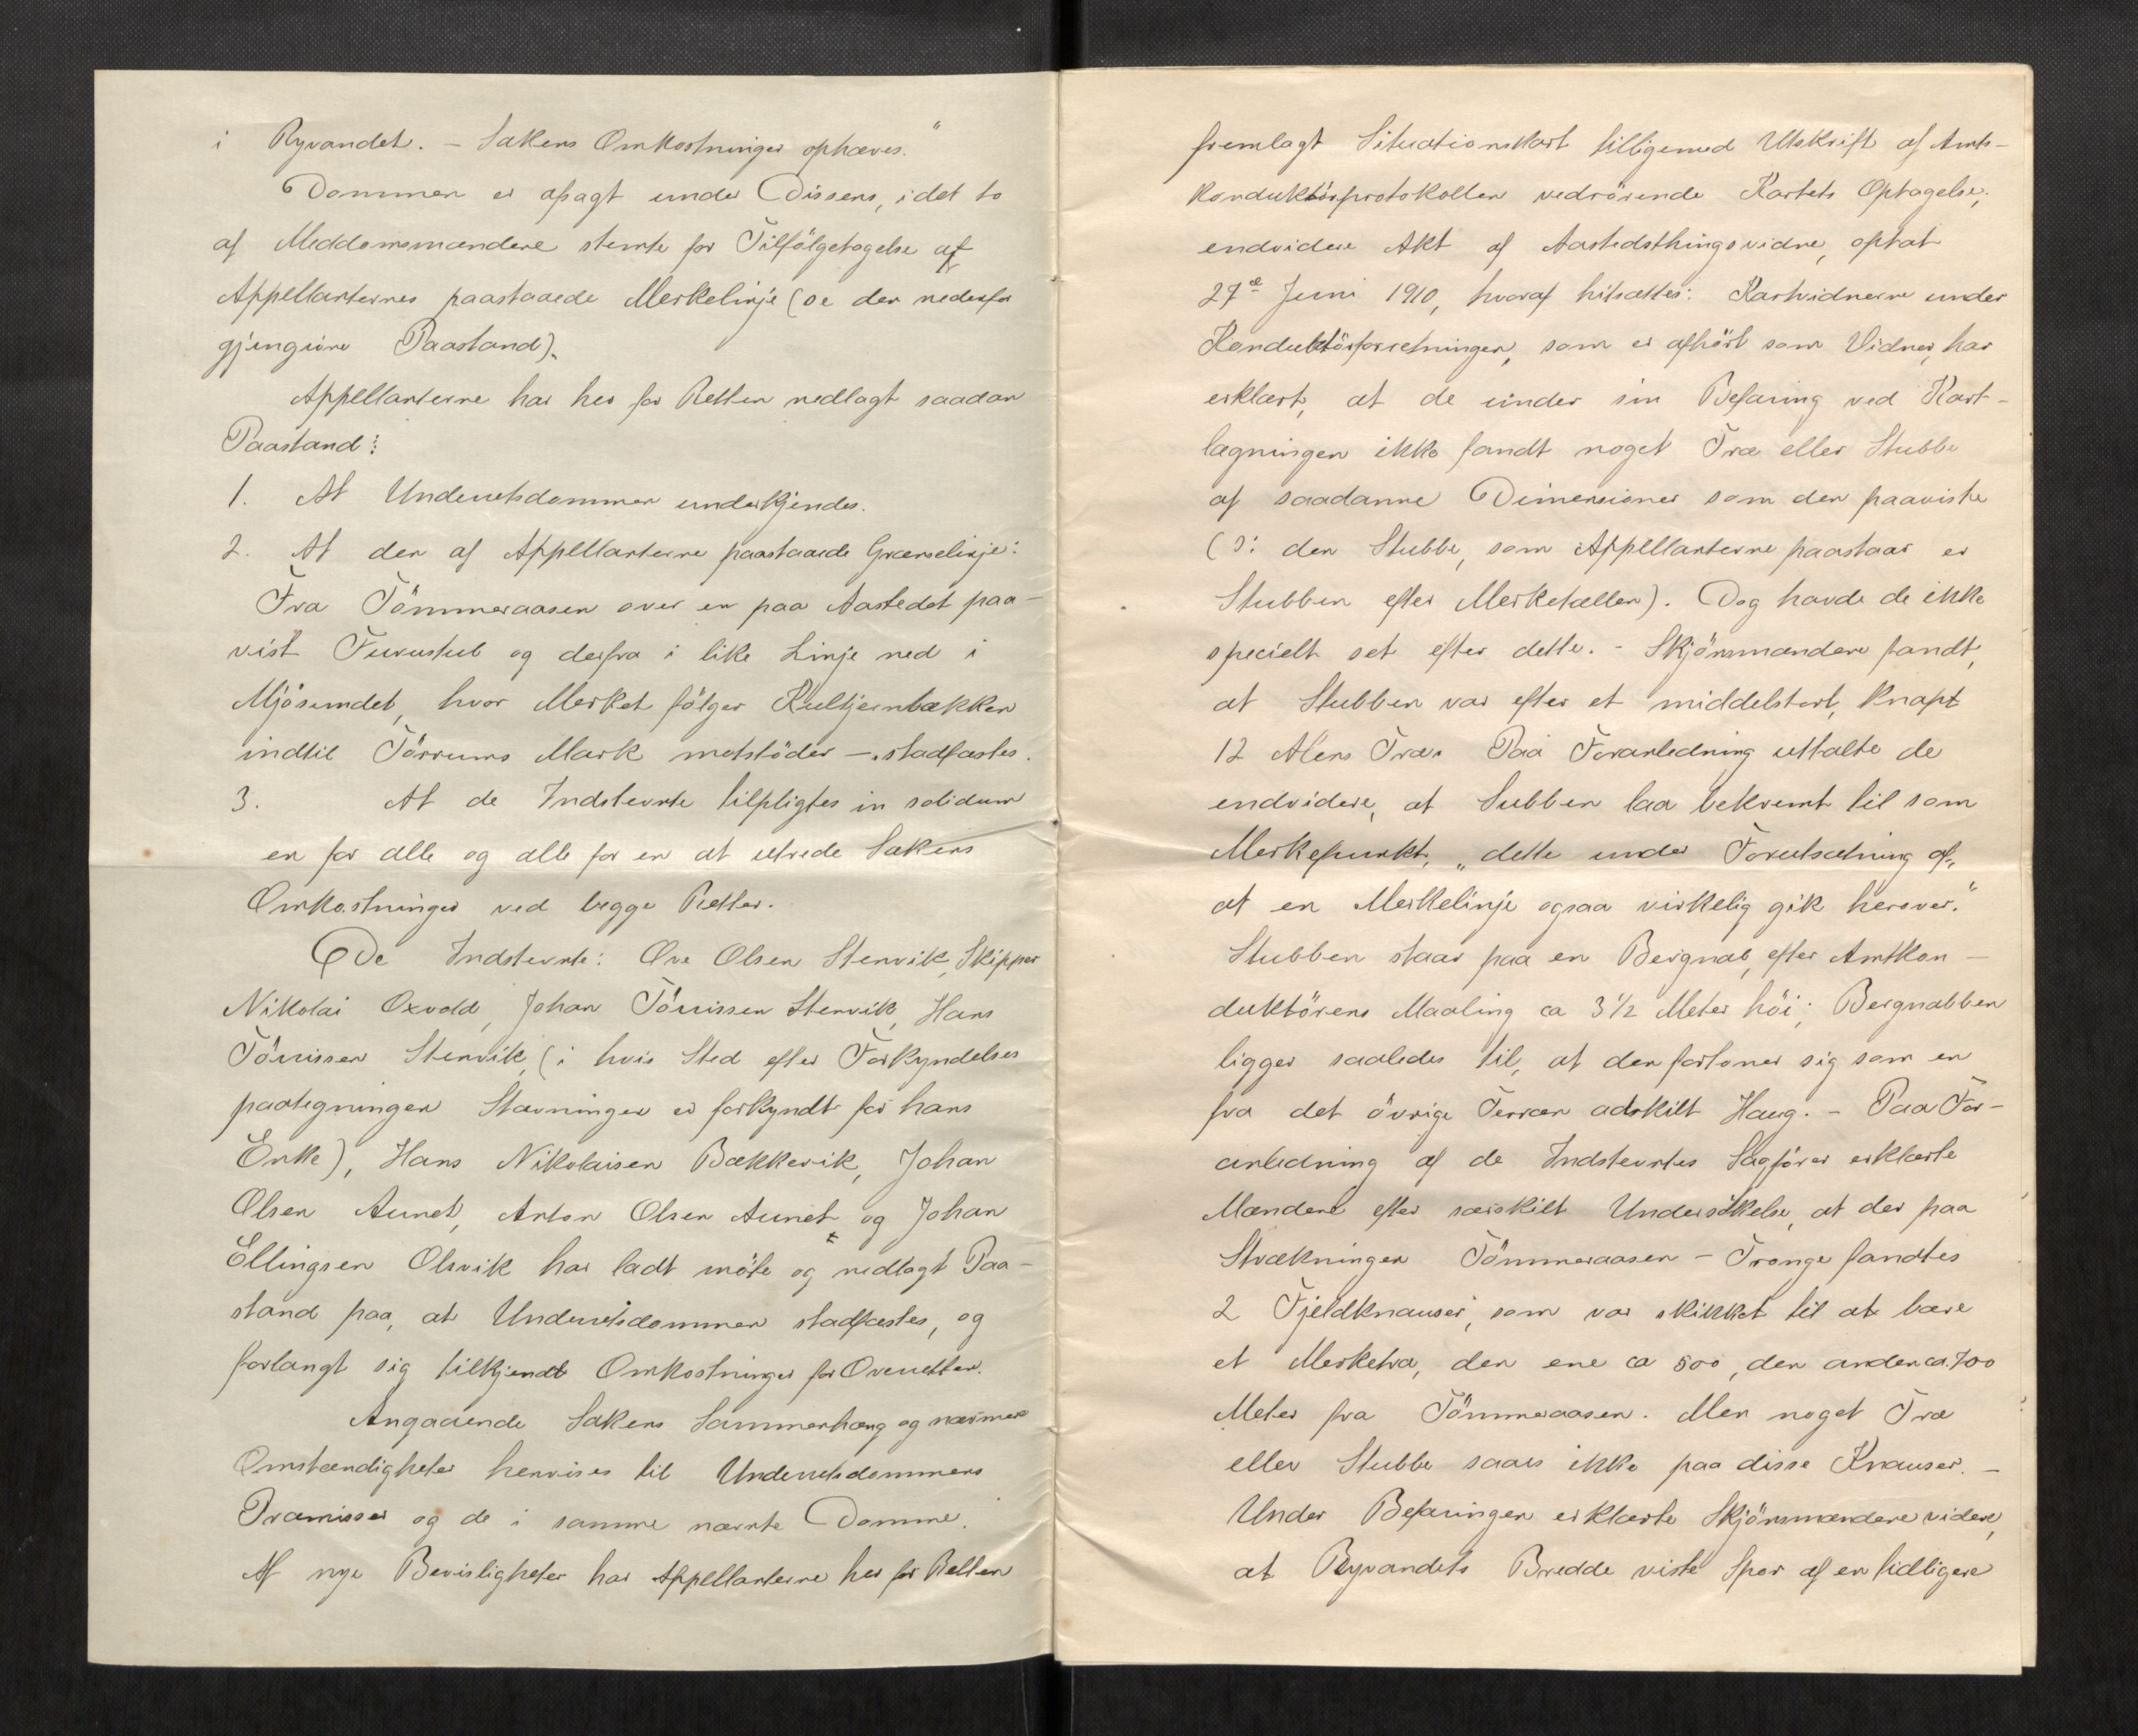 i Ryvandet. – Sakens Omkostninger ophæves."
Dommen er afsagt under Dissens, idet to
af Meddomsmændene stemte for Tilfölgetagelse af
Appellanternes paastaaede Merkelinje (se den nedenfor
gjengivne Paastand).
Appellanterne har her for Retten nedlagt saadan
Paastand:
1. At Underretsdommen underkjendes.
2. At den af Appellanterne paastaaede Grænselinje:
Fra Tömmeraasen over en paa Aastedet paa-
vist Furustub og derfra i like Linje ned i
Mjösundet, hvor Merket fölger Kultjernbækken
indtil Törrums Mark motstöder – stadfæstes.
3. At de Indstevnte tilpligtes in solidum
en for alle og alle for en at utrede Sakens
Omkostninger ved begge Retter.
De Indstevnte: Ove Olsen Stenvik, Skipper
Nikolai Oxvold, Johan Törrissen Stenvik, Hans
Törrissen Stenvik, (i hvis Sted efter Forkyndelses
paategningen Stævningen er forkyndt for hans
Enke), Hans Nikolaisen Bækkevik, Johan
Olsen Aunet, Anton Olsen Aunet og Johan
Ellingsen Olsvik har ladt möte og nedlagt Paa-
stand paa, at Underretsdommen stadfæstes, og
forlangt sig tilkjendt Omkostninger for Overretten.
Angaaende Sakens Sammenhæng og nærmere
Omstændigheter henvises til Underretsdommens
Præmisser og de i samme nævnte Domme.
Af nye Bevisligheter har Appellanterne her for Retten
fremlagt Situationskart tilligemed Utskrift af Amts-
konduktörprotokollen vedrörende Kartets Optagelse;
endvidere Akt af Aastedsthingsvidne, optat
27de Juni 1910, hvoraf hitsættes: Kartvidnerne under
Konduktörforretningen, som er afhört som Vidner, har
erklært, at de under sin Befaring ved Kart-
lægningen ikke fandt noget Træ eller Stubbe
af saadanne Dimensioner som den paaviste
(ɔ: den Stubbe, som Appellanterne paastaar er
Stubben efter Merketællen). Dog havde de ikke
specielt set efter dette. – Skjönsmændene fandt,
at Stubben var efter et middelstort, knapt
12 Alens Træ. Paa Foranledning uttalte de
endvidere, at Subben laa bekvemt til som
Merkepunkt, "dette under Forutsætning af,
at en Merkelinje ogsaa virkelig gik herover."
Stubben staar paa en Bergnab, efter Amtkon-
duktörens Maaling ca 3½ Meter höi; Bergnabben
ligger saaledes til, at den fortoner sig som en
fra det övrige Terræn adskilt Haug. – Paa For-
anledning af de Indstevntes Sagförer erklærte
Mændene efter særskilt Undersökelse, at der paa
Strækningen Tömmeraasen – Tronge fandtes
2 Fjeldknauser, som var skikket til at bære
et Merketræ, den ene ca 500, den anden ca. 700
Meter fra Tömmeraasen. Men noget Træ
eller Stubbe saaes ikke paa disse Knauser. –
Under Befaringen erklærte Skjönsmændene videre,
at Ryvandets Bredde viste Spor af en tidligere